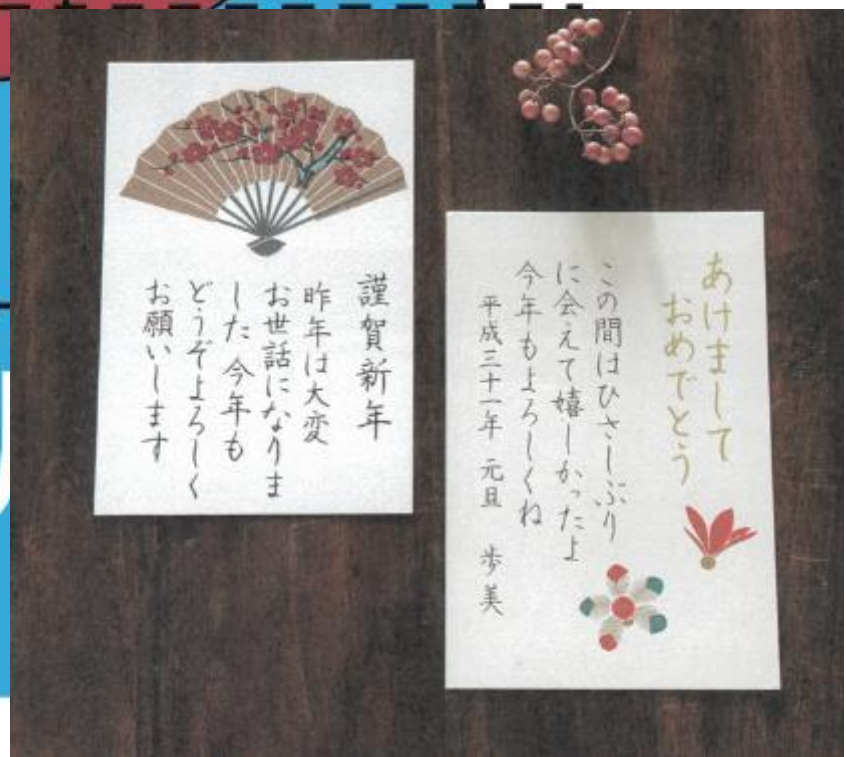 謹賀新年
昨年は大変
お世話になりま
した 今年も
どうぞよろしく
お願いします
あけまして
おめでとう
この間はひさしぶり
に会えて嬉しかったよ
今年もよろしくね
平成三十一年 元旦 歩美